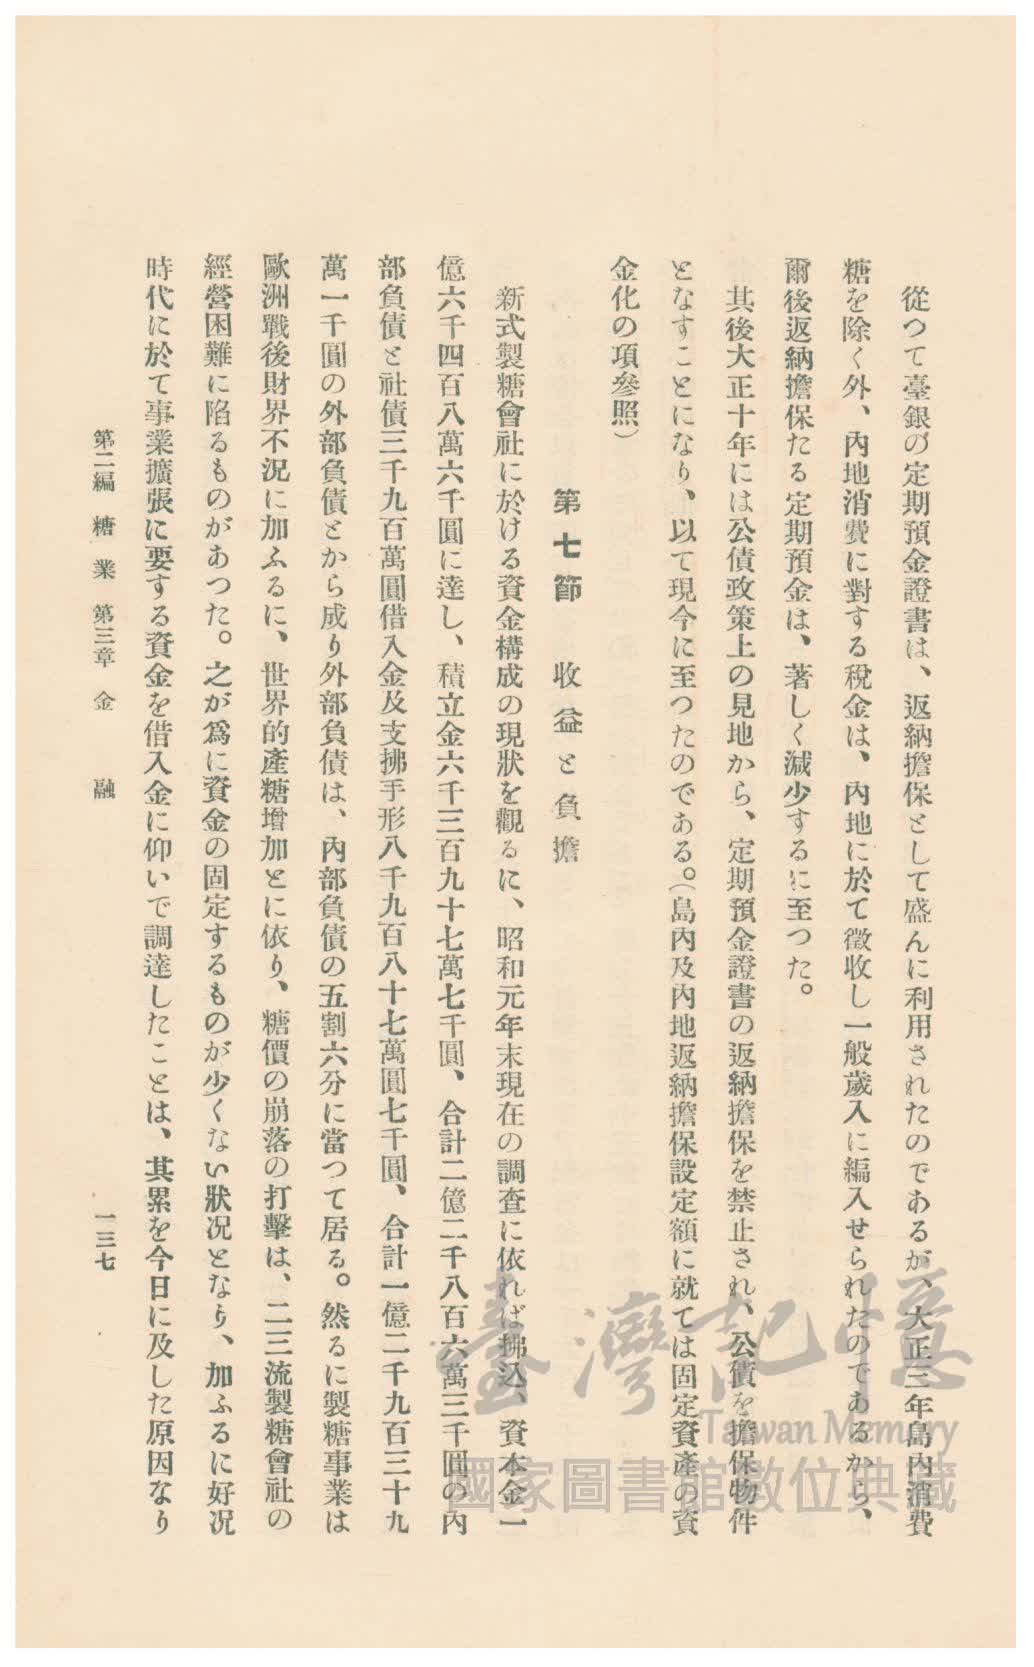 從つて臺銀の定期預金證書は、返納擔保として盛んに利用されたのであるが、大正三年島內消費
糖を除く外、內地消費に對する稅金は、內地に於て徵收し一般歲入に編入せられたのであるから、
爾後返納擔保たる定期預金は、著しく減少するに至つた。
其後大正十年には公債政策上の見地から、定期預金證書の返納擔保を禁止され、公債を擔保物件
となすことになり、以て現今に至つたのである。(島內及內地返納擔保設定額に就ては固定資產の資
金化の項參照)
第七節 收益と負擔
新式製糖會社に於ける資金構成の現狀を觀るに、昭和元年末現在の調査に依れば拂込、資本金一
億六千四百八萬六千圓に達し、積立金六千三百九十七萬七千圓、合計二億二千八百六萬三千圓の內
部負債と社債三千九百萬圓借入金及支拂手形八千九百八十七萬圓七千圓、合計一億二千九百三十九
萬一千圓の外部負債とから成り外部負債は、內部負債の五割六分に當つて居る。然るに製糖事業は
歐洲戰後財界不況に加ふるに、世界的產糖增加とに依り、糖價の崩落の打擊は、二三流製糖會社の
經營困難に陷るものがあつた。之が爲に資金の固定するものが少くない狀況となり、加ふるに好況
時代に於て事業擴張に要する資金を借入金に仰いで調達したことは、其累を今日に及した原因なり
第二編 糖業 第三章 金融
一三七
臺灣記憶
Taiwan Memory
國家圖書館數位典藏